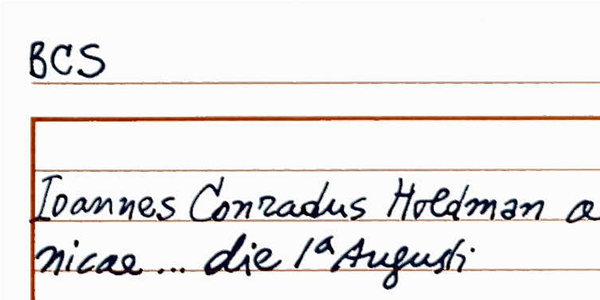 BCS
Ioannes Conradus Holdman a
nicae... die 1ª Augusti